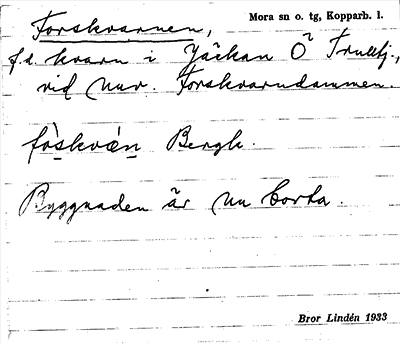 Mora sn o. tg, Kopparb. l.
Forskvarnen,
f.d. kvarn i Jäckan Ö Trullfj.,
vid nuv. Forskvarndammen.
fo̱skvæn Bergk.
Byggnaden är nu borta.
Bror Lindén 1933